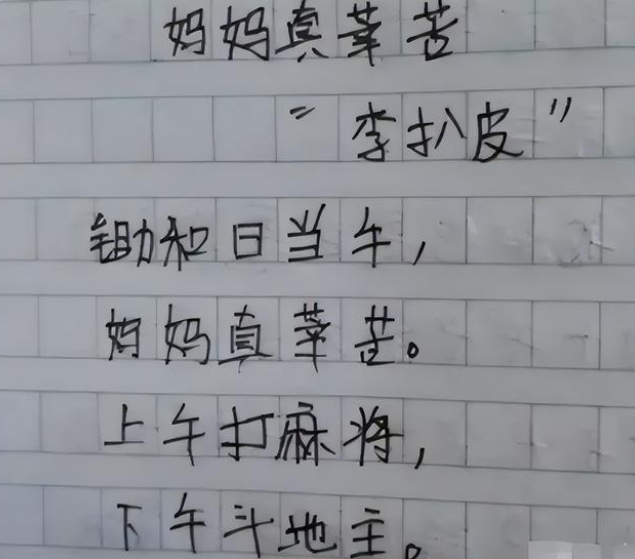 妈妈真莘苦
“李扒皮”
锄和日当午,
妈妈真莘苦。
上午打麻将,
下午斗地主。